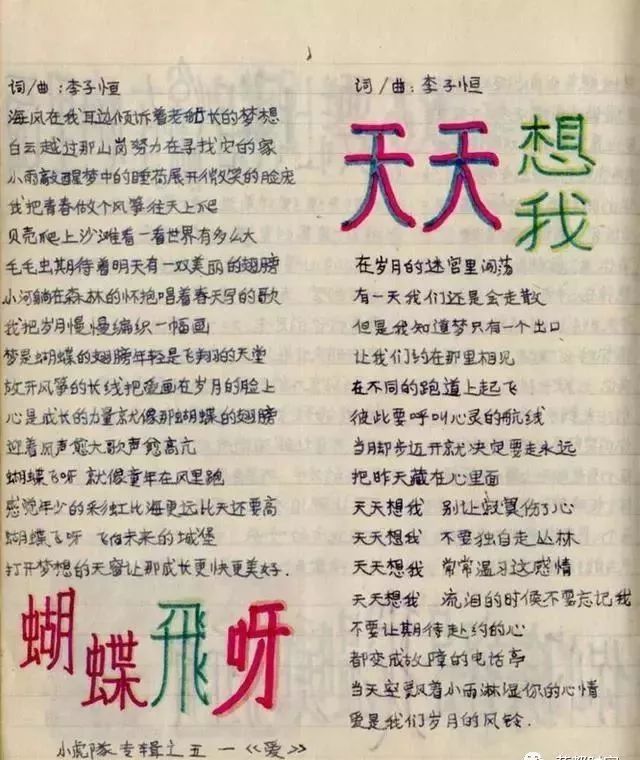 词/曲:李子恒
海风在我耳边倾诉着老船长的梦想
白云越过那山岗努力在寻找它的家
小雨敲醒梦中的睡荷展开微笑的脸庞
我把青春做个风筝往天上爬
贝壳爬上沙滩看一看世界有多么大
毛毛虫期待着明天有一双美丽的翅膀
小河躺在森林的怀抱唱着春天写的歌
我把岁月慢慢编织一幅画
梦是蝴蝶的翅膀年轻是飞翔的天堂
放开风筝的长线把爱画在岁月的脸上
心是成长的力量就像那蝴蝶的翅膀
迎着风声愈大歌声愈高亢
蝴蝶飞呀 就像童年在风里跑
感觉年少的彩虹比海更远比天还要高
蝴蝶飞呀 飞向未来的城堡
打开梦想的天窗让那成长更快更美好.
蝴蝶飛呀
小虎隊专辑之五—《爱》
词/曲:李子恒
天天想我
在岁月的迷宫里闯荡
有一天我们还是会走散
但是我知道梦只有一个出口
让我们约在那里相见
在不同的跑道上起飞
彼此要呼叫心灵的航线
当脚步迈开就决定要走永远
把昨天藏在心里面
天天想我 别让寂寞伤了心
天天想我 不要独自走丛林
天天想我 常常温习这感情
天天想我 流泪的时候不要忘记我
不要让期待赴约的心
都变成故障的电话亭
当天空飘着小雨淋湿你的心情
爱是我们岁月的风铃.